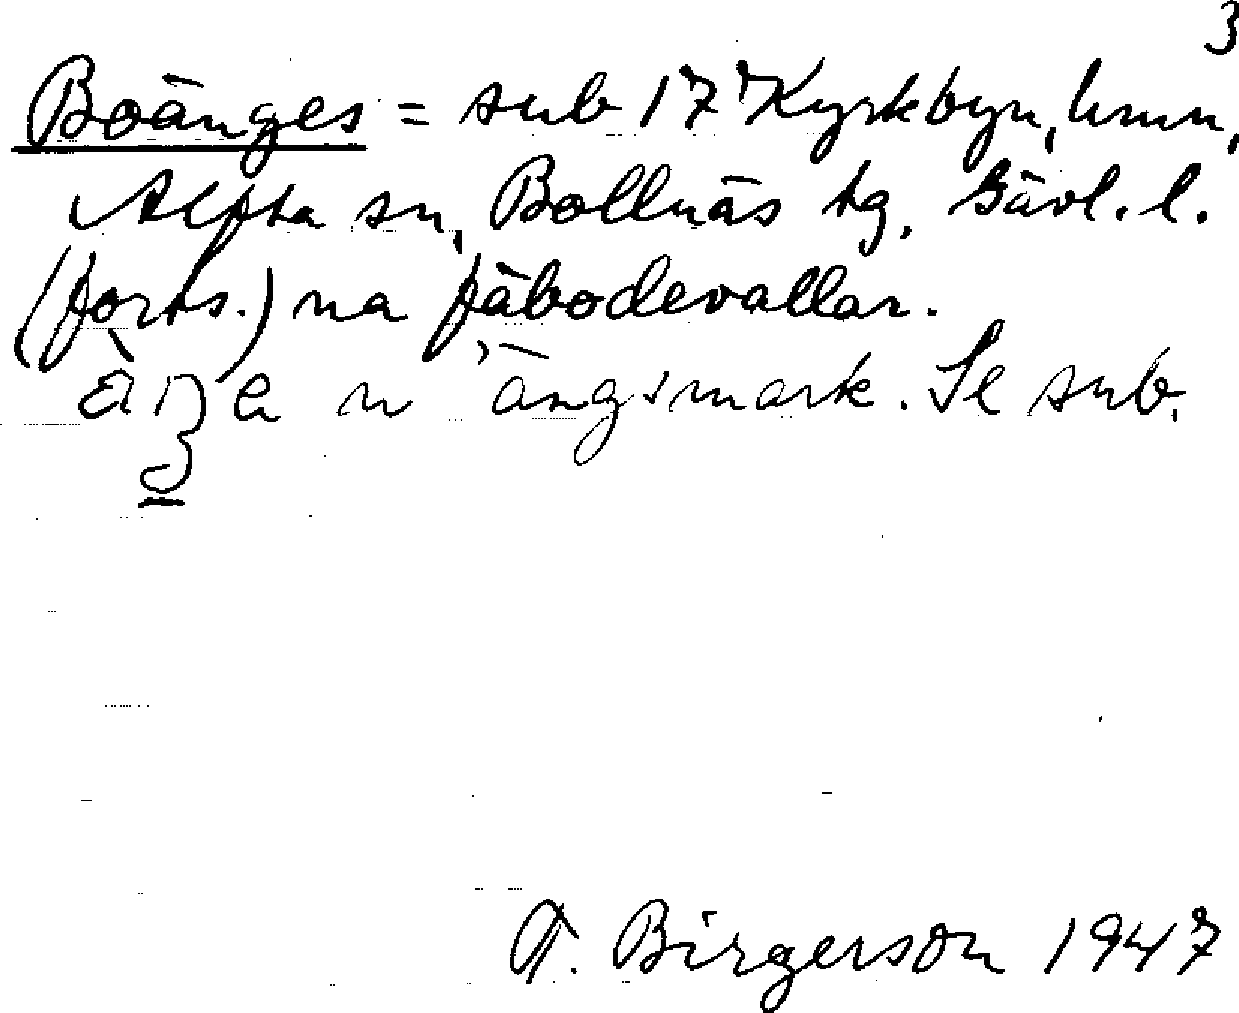 3
Boänges = sub 17 Kyrkbyn, hmn,
Alfta sn, Bollnäs tg, Gävl. l.
(forts.) na fäbodevallar.
n ängsmark. Se sub.
A. Birgerson 1947